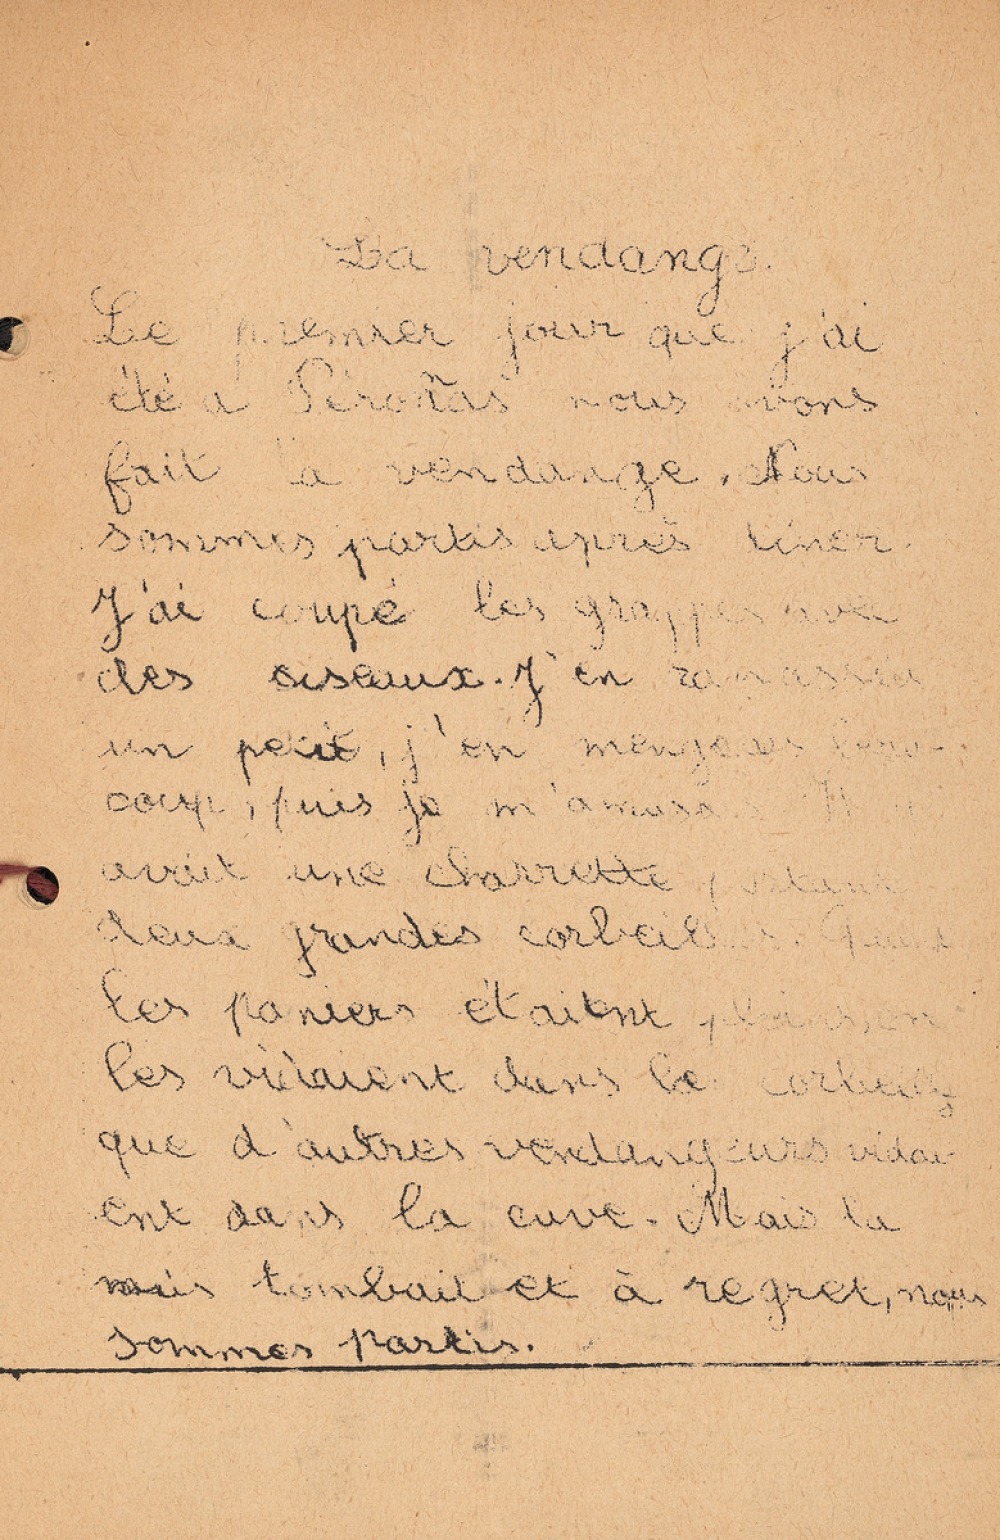 La vendange.
Le premier jour que j'ai
été a nous avons
fait la vendange. Nous
sommes partis après diner.
J'ai coupé les grappes avec
des siseaux. J'en ramassai
un petit, j'en mengeais beau-
coup, puis je m'amusais. Il y
avait une charrette portant
deux grandes corbeilles. Quand
les paniers étaient pleins, on
les vidaient dans la corbeille
que d'autres vendangeurs vidai
ent dans la cuve. Mais la
nuis tombait et à regret, nous
sommes partis.